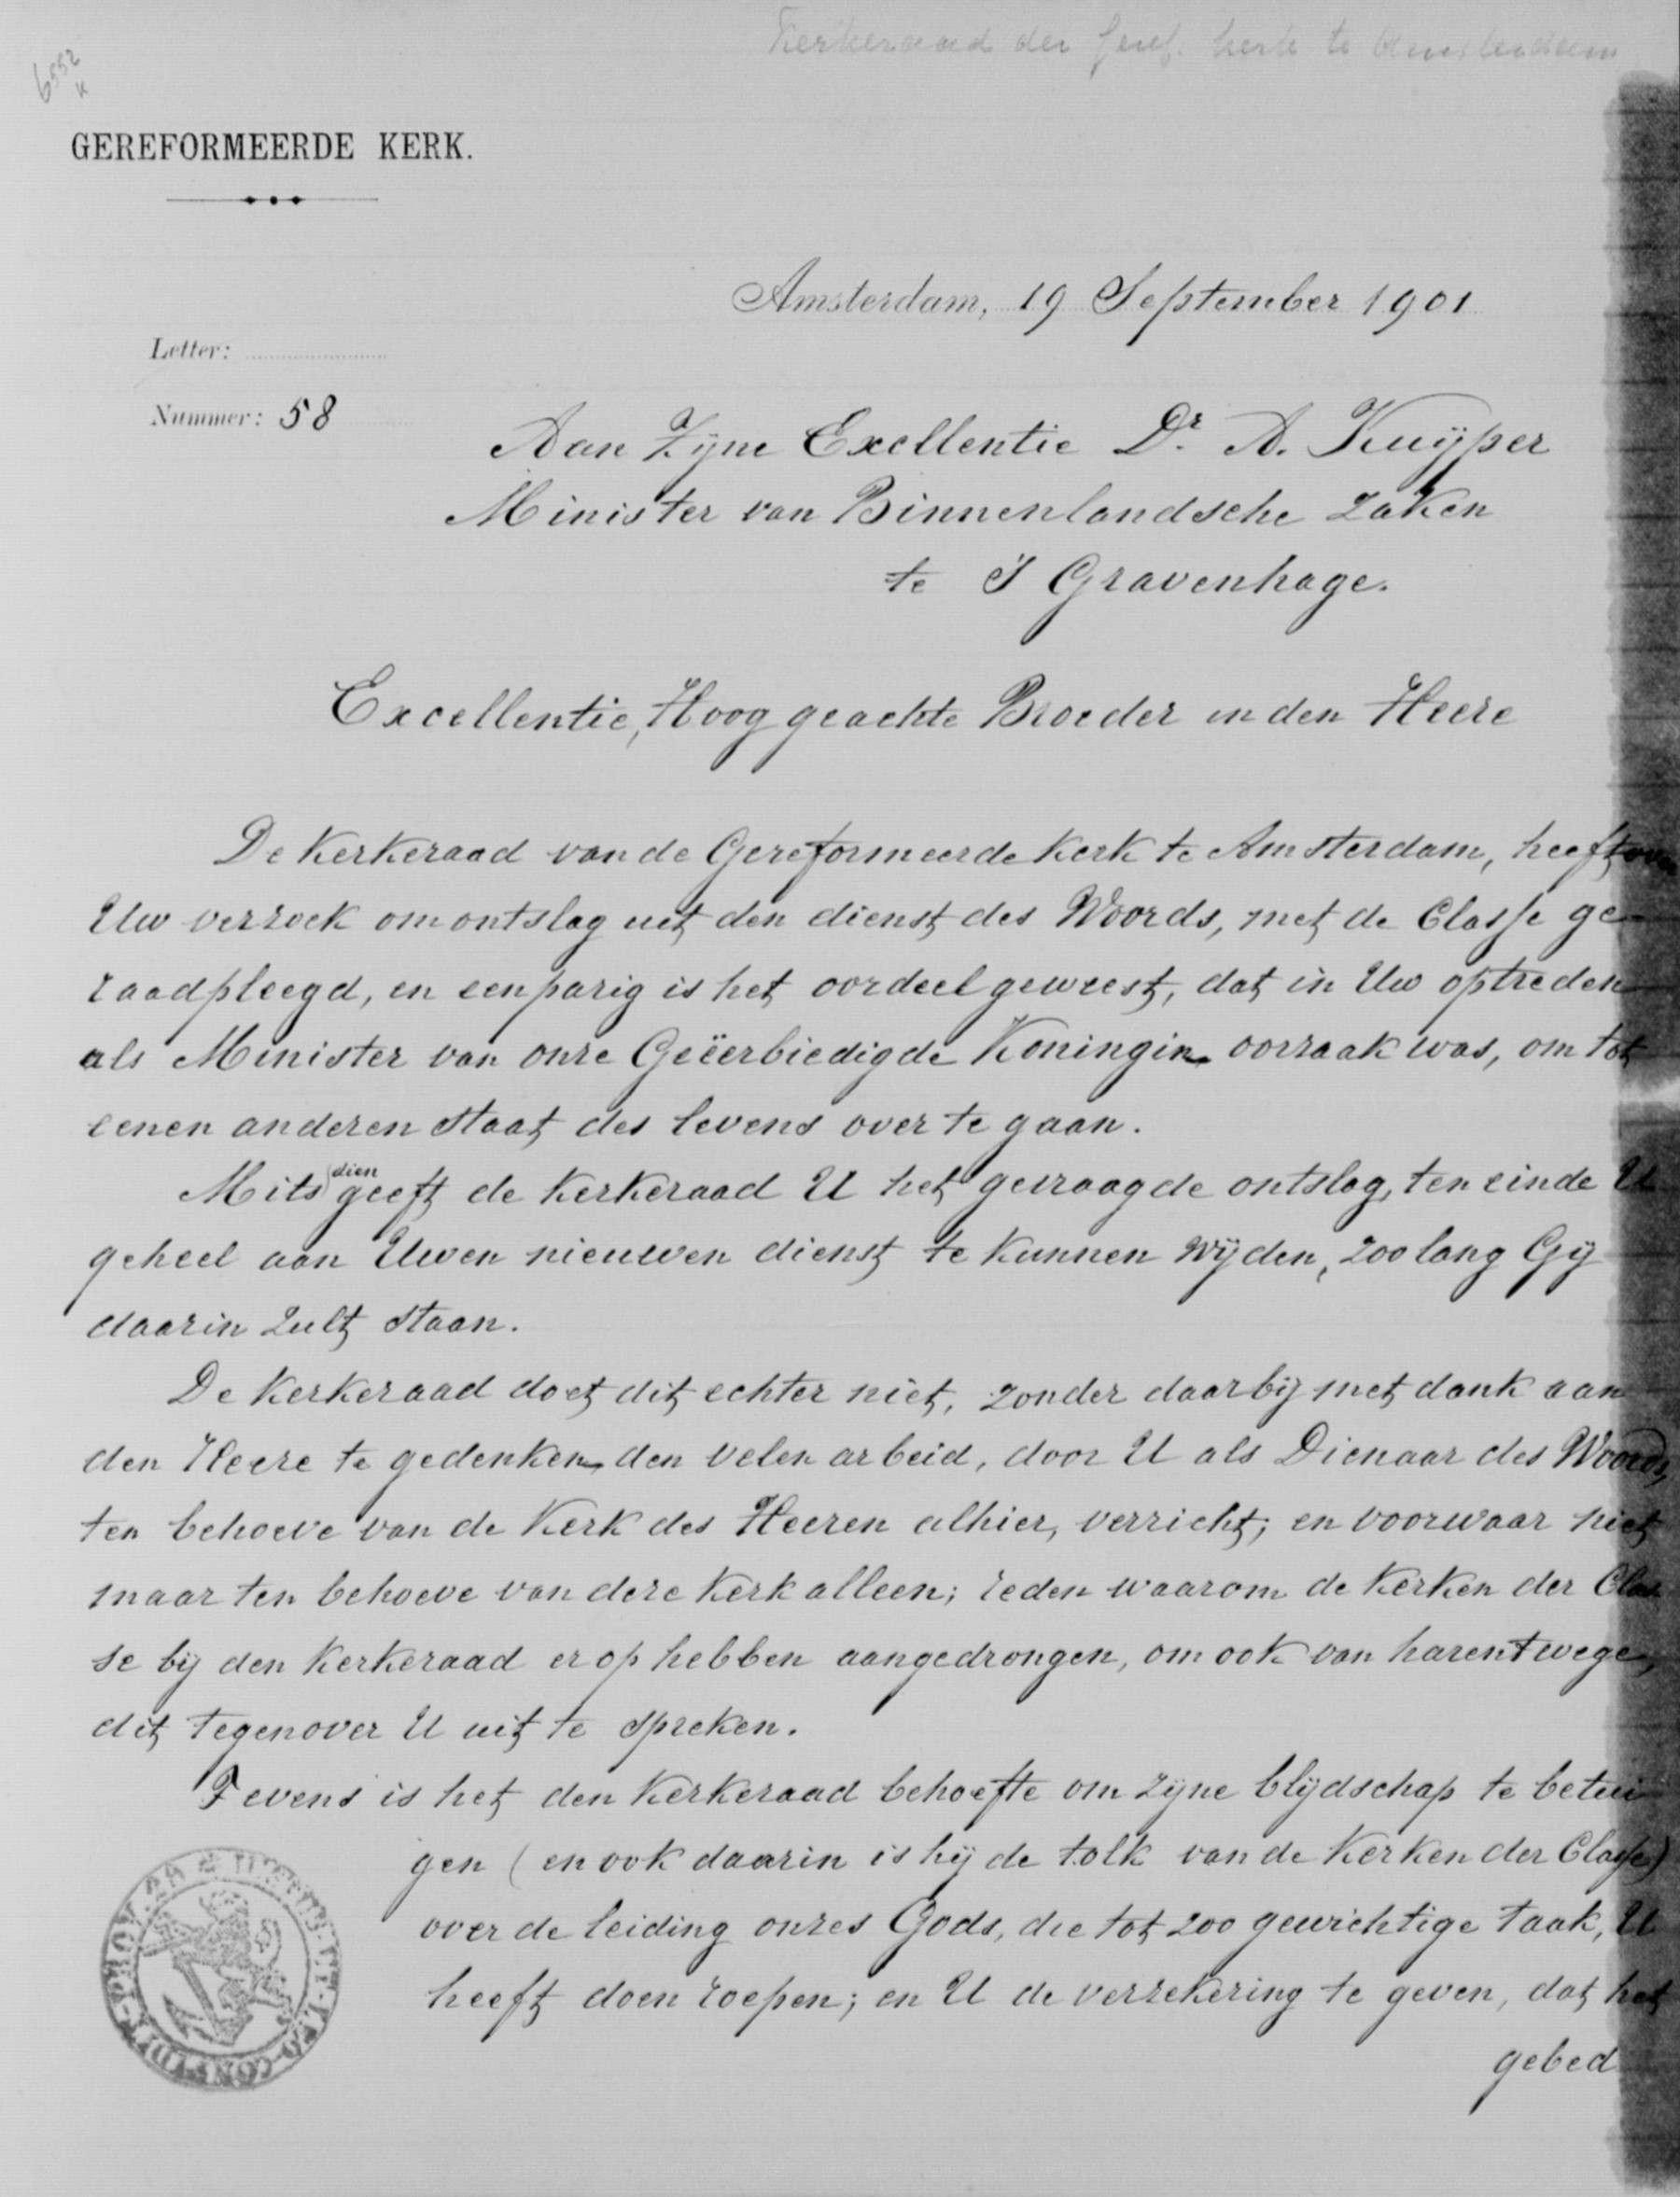 Kerkeraad der Geref. kerk te Amsterdam
6552
K
GEREFORMEERDE KERK.
Amsterdam, 19 September 1901
Letter:
Nummer: 58
Aan Zyne Excellentie Dr. A. Kuÿper
Minister van Binnenlandsche Zaken
te S Gravenhage.
Excellentie, Hooggeachte Broeder in den Heere
De Kerkeraad van de Gereformeerde Kerk te Amsterdam, heeft over
Uw verzoek om ontslag uit den dienst des Woords, met de Classe ge-
raadpleegd, en eenparig is het oordeel geweest, dat in Uw optreden
als Minister van onze Geëerbiedigde Koningin oorzaak was, om tot
eenen anderen staat des levens over te gaan.
Mits dien geeft de Kerkeraad U het gevraagde ontslag, ten einde U
geheel aan Uwen nieuwen dienst te kunnen wijden, zoolang Gij
daarin zult staan.
De Kerkeraad doet dit echter niet, zonder daarbij met dank aan
den Heere te gedenken den velen arbeid, door U als Dienaar des Woords,
ten behoeve van de Kerk des Heeren alhier, verricht; en voorwaar niet
maar ten behoeve van deze Kerk alleen; reden waarom de Kerken der Clas
se bij den Kerkeraad er op hebben aangedrongen, om ook van harentwege,
dit tegenover U uit te spreken.
Tevens is het den Kerkeraad behoefte om zyne blydschap te betui
gen (en ook daarin is hij de tolk van de Kerken der Classe)
over de leiding onzes Gods, die tot zoo gewichtige taak, U
heeft doen roepen; en U de verzekering te geven, dat het
gebed